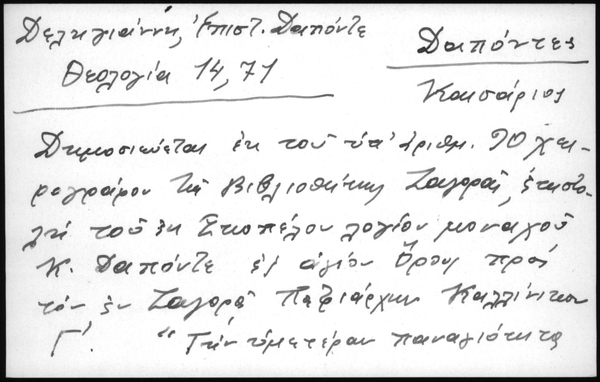 Δεληγιάννη, Ἐπιστ. Δαπόντε
Θεολογία 14, 71
Δαπόντες
Καισάριος
Δημοσιεύεται ἐκ τοῦ ὑπ' ἀριθμ. 90 χει-
ρογράφου τῆς Βιβλιοθήκης Ζαγορᾶς, ἐπιστο-
λὴ τοῦ ἐκ Σκοπέλου λογίου μοναχοῦ
Κ. Δαπόντε ἐξ ἁγίου Ὄρους πρὸς
τὸν ἐν Ζαγορᾷ Πατριάρχην Καλλίνικον
Γ'. "Τὴν ὑμετέραν παναγιότητα